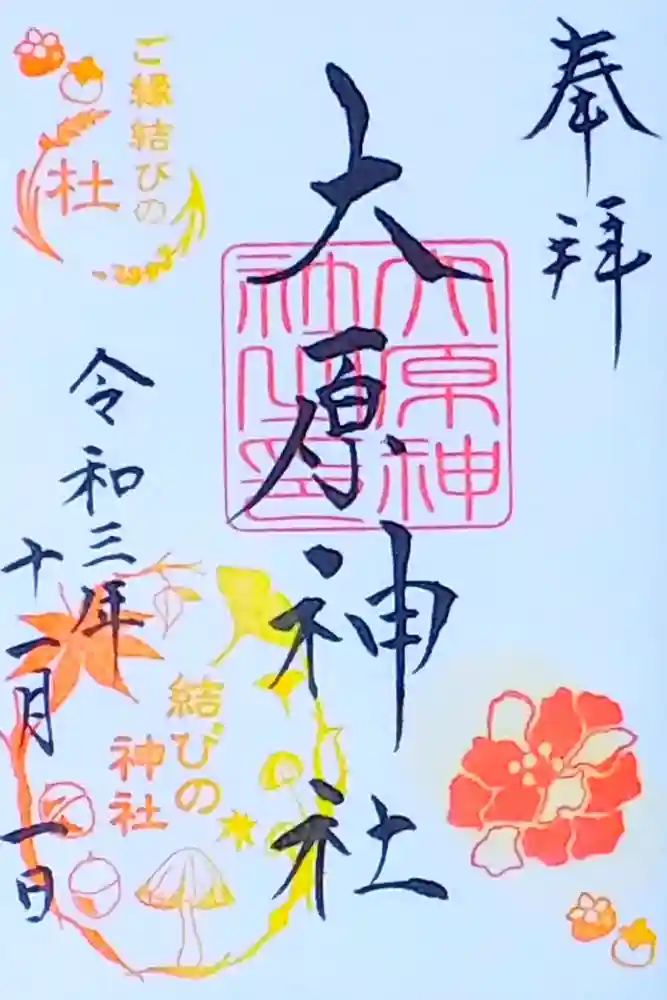 奉拝
大原神社
大原神
社之印
令和三年
十一月一日
ご縁結びの
杜
結びの
神社